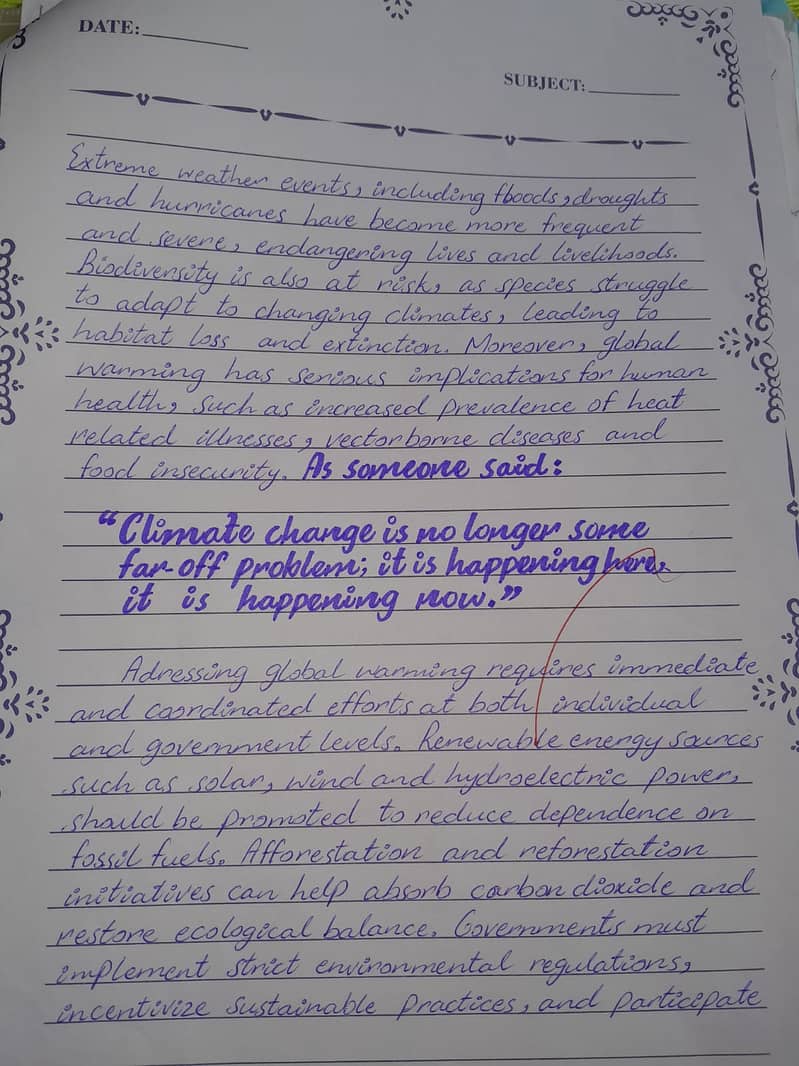 3
DATE:
SUBJECT:
Extreme weather events, including floods, droughts
and hurricanes have become more frequent
and severe, endangering lives and livelihoods.
Biodiversity is also at risk, as species struggle
to adapt to changing climates, leading to
habitat loss and extinction. Moreover, global
warming has serious implications for human
health, such as increased prevalence of heat
related illnesses, vectorborne diseases and
food insecurity. As someone said:
“Climate change is no longer some
far-off problem; it is happening here,
it is happening now.”
Adressing global warming requires immediate
and coordinated efforts at both individual
and government levels. Renewable energy sources
such as solar, wind and hydroelectric power,
should be promoted to reduce dependence on
fossil fuels. Afforestation and reforestation
initiatives can help absorb carbon dioxide and
restore ecological balance. Governments must
implement strict environmental regulations,
incentivize sustainable practices, and participate